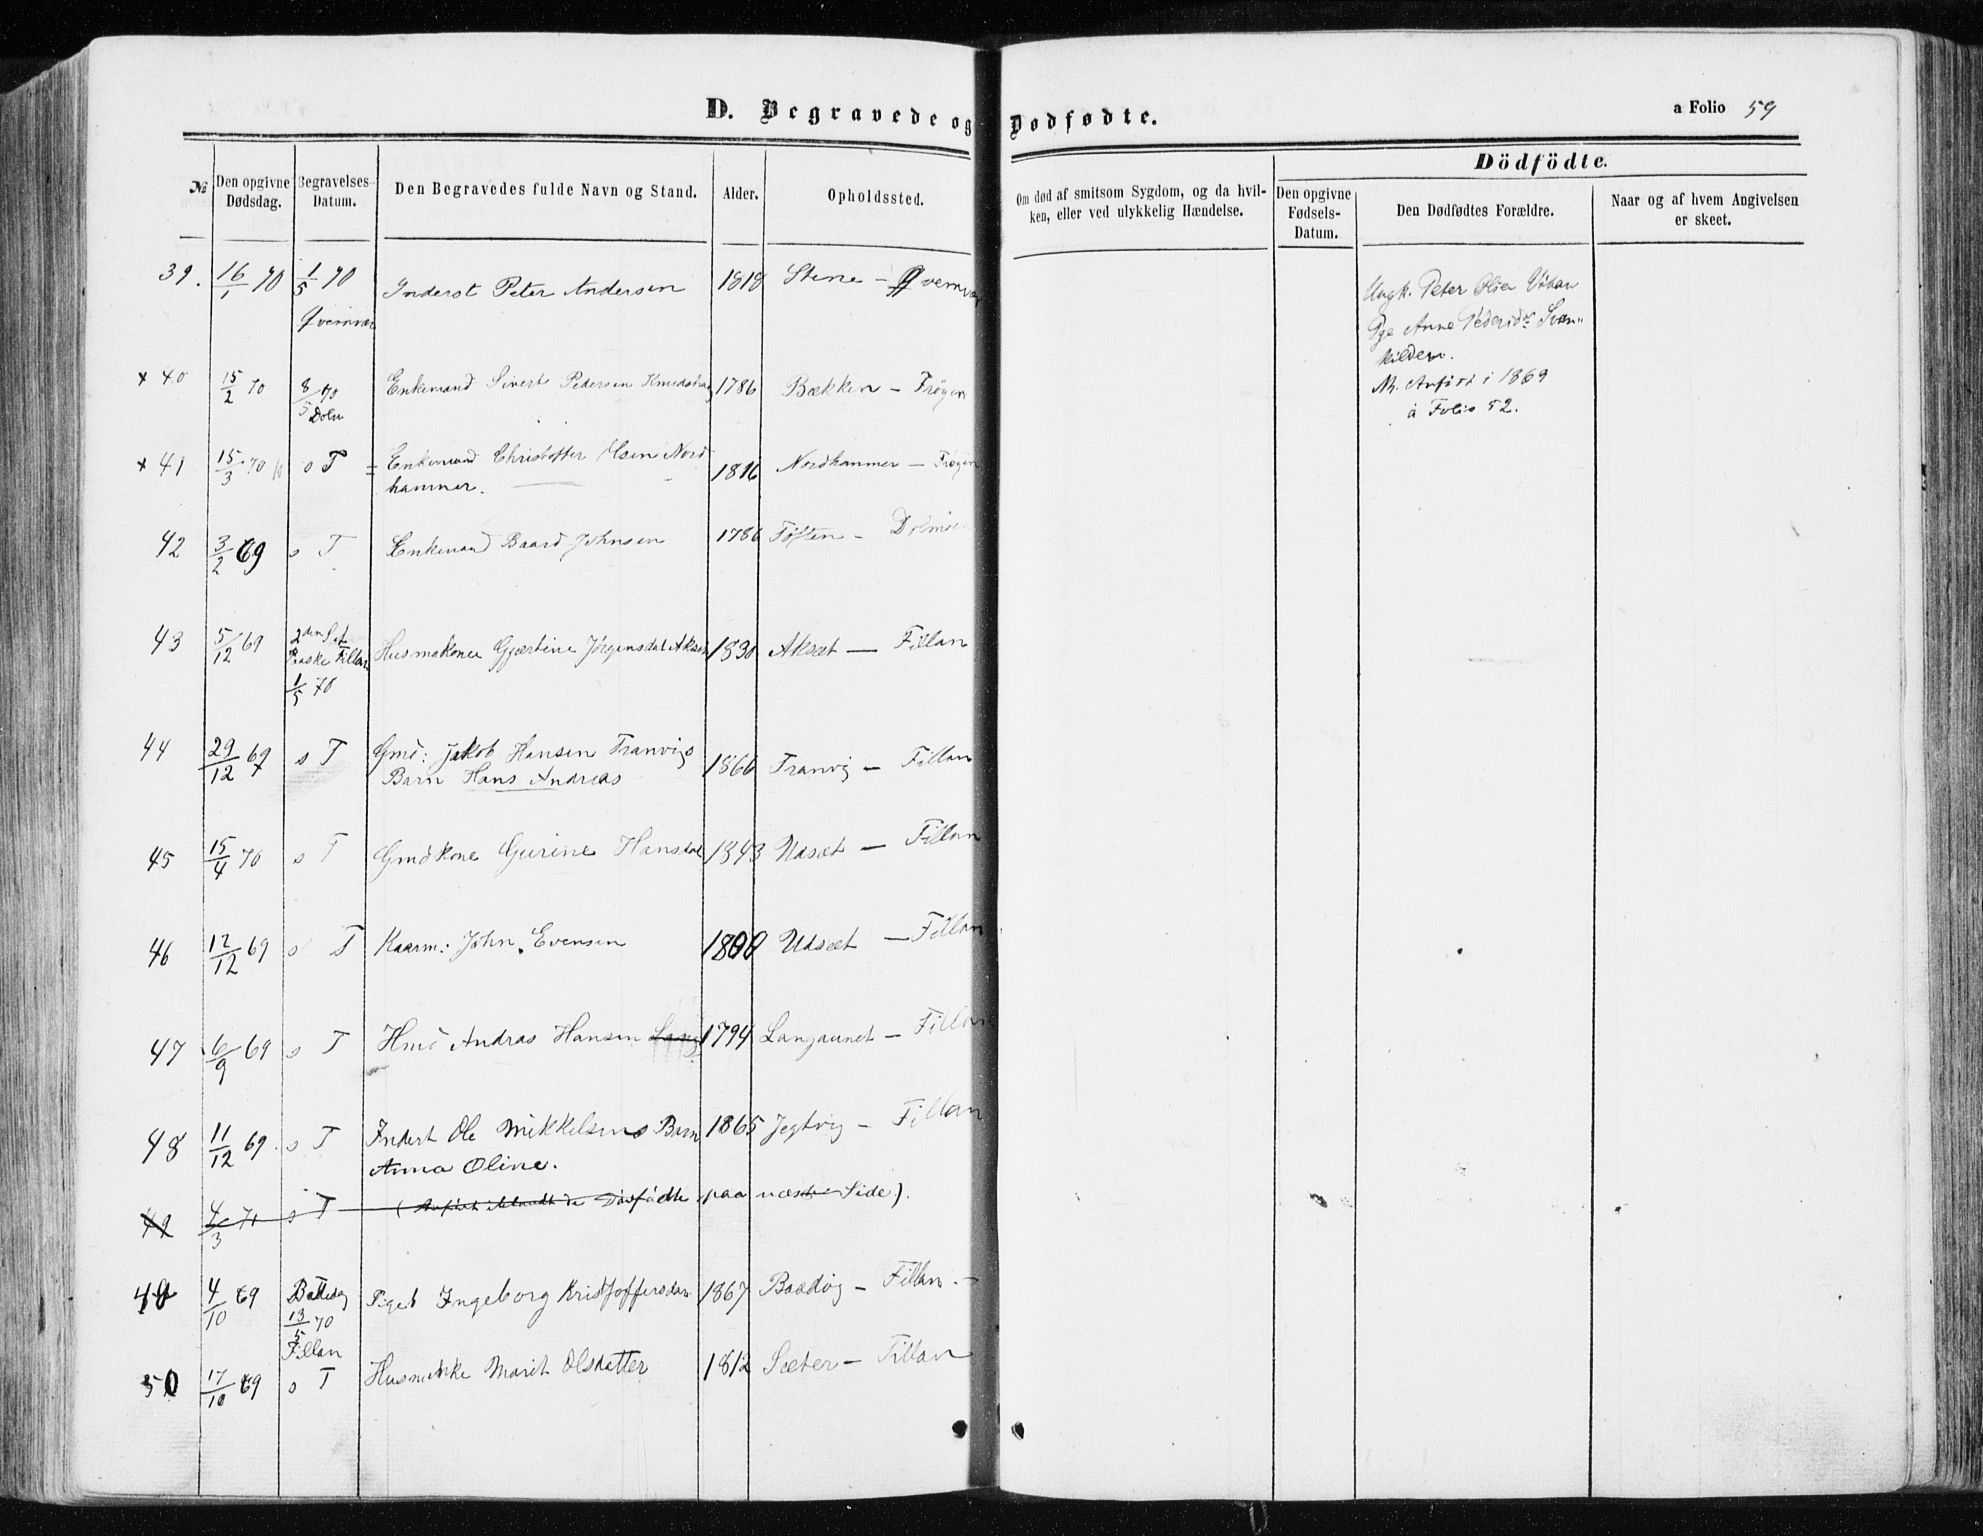 D. Begravede og Dødfødte.
a Folio 59
Dödfödte.
№
Den opgivne Dødsdag.
Begravelses-Datum.
Den Begravedes fulde Navn og Stand.
Alder.
Opholdssted.
Om død af smitsom Sygdom, og da hvil-
ken, eller ved ulykkelig Hændelse.
Den opgivne Fødsels-Datum.
Den Dødfødtes Forældre.
Naar og af hvem Angivelsen
er skeet.
39. 16/1 70 1/5 70 Inderst Peter Andersen 1818 Stene — Qvenvær
Qvenvær
Ungk. Peter Olsen
Pge Anne Pedersdr
Anført i 1869
å Folio 52.
+ 40 15/2 70 8/5 70 Enkemand Sivert Pedersen 1786 Bækken — Frøyen
Dolm
+ 41 15/3 70 s T Enkemand Christoffer Olsen Nord 1816 Nordhammer — Frøyen
hammer.
42 3/2 69 s T Enkemand Baard Johnsen 1786 Tøften — Dolmøe
43 5/12 69 2den Paaske Fillan Husmakonee Gjertine Jørgensdat Akset 1830 Aksæt — Fillan
1/5 70
44 29/12 69 s T Gmd: Jakob Hansen Tranvigs 1866 Tranvig — Fillan
Barn Hans Andreas
45 15/4 70 s T Gmdkone Gurine Hansdat 1843 Udsæt — Fillan
46 12/12 69 s T Kaarm: John Evensen 1800 Udsæt — Fillan
47 6/9 69 s T Hmd Andras Hansen Lang 1794 Langaunet — Fillan
48 11/12 69 s T Inderst Ole Mikkelsens Barn 1865 Jegtvig — Fillan
Anna Oline.
49 4/3 71 s T (Anført iblandt de Dødfødte paa næste Side).
49 4/10 69 Bededag Pigeb Ingeborg Kristoffersdat 1867 Baadvig — Fillan.—
13/5 70
Fillan
50 17/10 69 s T Husmenke Marit Olsdatter 1812 Sæter — Fillan